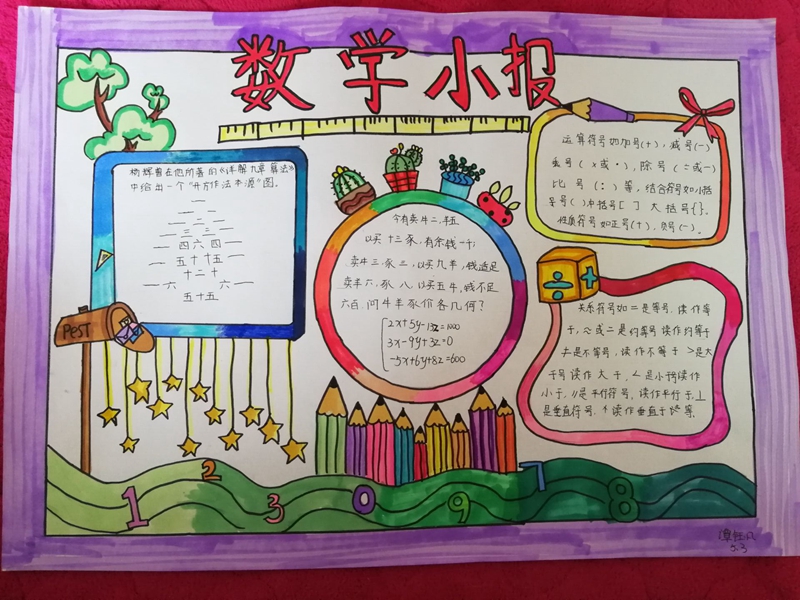 数学小报
杨辉曾在他所著的《详解九章算法》
中给出一个“开方作法本源”图。
一
一 一
一 二 一
一 三 三 一
一 四 六 四 一
一 五 十 十 五 一
十 二 十
一 六 六 一
五 十 五
PEST
今有卖牛二、羊五
以买十三豕,有余钱一千,
卖牛三、豕三,以买九羊,钱适足
卖羊六、豕八,以买五牛,钱不足
六百,问牛羊豕价各几何?
2x+5y-13z=1000
3x-9y+3z=0
-5x+6y+8z=600
运算符号如加号(+),减号(一)
乘号(x或•),除号(÷或一)
比号(:)等,结合符号如小括
号( )中括号[ ]大括号{}。
性质符号如正号(+),负号(一)。
关系符号如=是等号,读作等
于,≈或=是约等号读作约等于
≠是不等号,读作不等于 >是大
于号读作大于,<是小于读作
小于,//是平行符号,读作平行于,⊥
是垂直符号,读作垂直于等
1 2 3 0 9 7 8
5.3